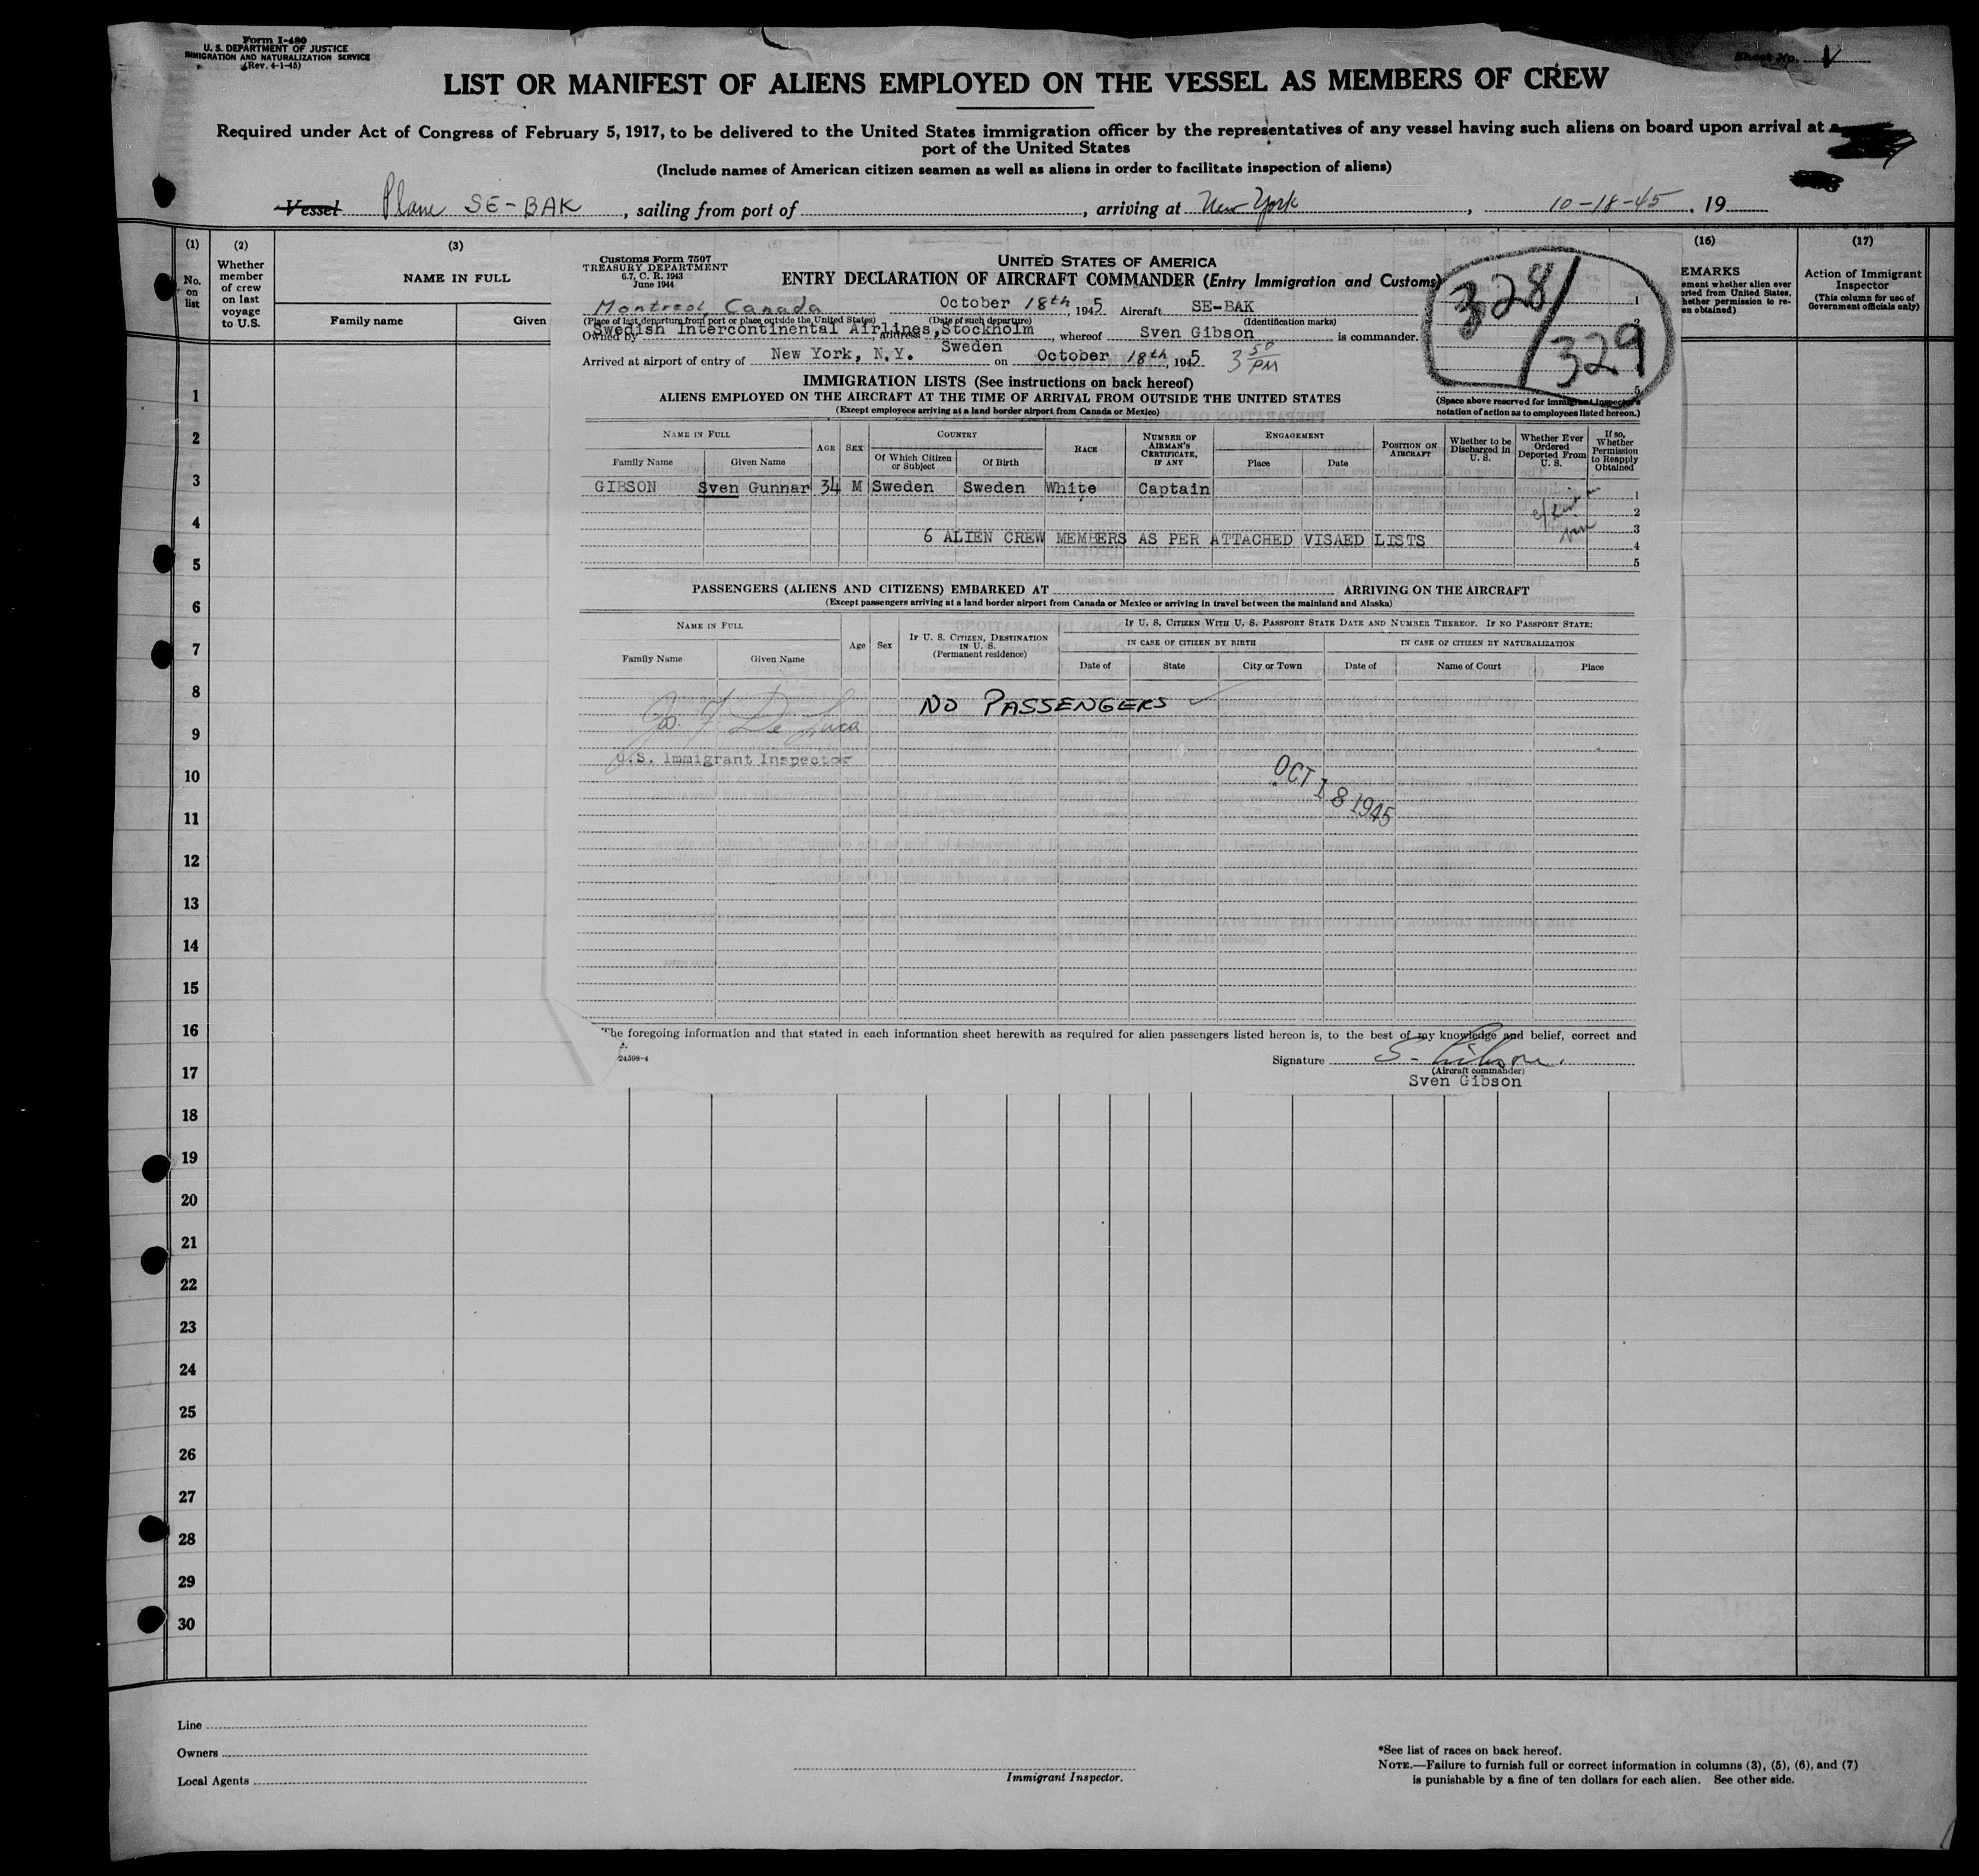 Form I-480
U. S. DEPARTMENT OF JUSTICE
IMMIGRATION AND NATURALIZATION SERVICE
(Rev. 4-1-45)
Sheet No.
LIST OR MANIFEST OF ALIENS EMPLOYED ON THE VESSEL AS MEMBERS OF CREW
Required under Act of Congress of February 5, 1917, to be delivered to the United States immigration officer by the representatives of any vessel having such aliens on board upon arrival at a
port of the United States
(Include names of American citizen seamen as well as aliens in order to facilitate inspection of aliens)
Vessel Plane SE-BAK, sailing from port of , arriving at New York , 10-18-45, 19
(1) (2) (3) (16) (17)
No. on list
Whether member of crew on last voyage to U.S.
NAME IN FULL
Family name Given
EMARKS
ement whether alien ever
orted from United States,
hether permission to re-
en obtained)
Action of Immigrant Inspector
(This column for use of Government officials only)
Customs Form 7507
TREASURY DEPARTMENT
6.7, C. R. 1943
June 1944
UNITED STATES OF AMERICA
ENTRY DECLARATION OF AIRCRAFT COMMANDER (Entry Immigration and Customs)
328/329
Montreal, Canada October 18th, 1945 Aircraft SE-BAK
(Place of last departure from port or place outside the United States) (Date of such departure) (Identification marks)
Owned by Swedish Intercontinental Airlines, address, Stockholm Sweden, whereof Sven Gibson is commander.
Arrived at airport of entry of New York, N.Y. on October 18th, 1945 3 50 PM
IMMIGRATION LISTS (See instructions on back hereof)
ALIENS EMPLOYED ON THE AIRCRAFT AT THE TIME OF ARRIVAL FROM OUTSIDE THE UNITED STATES
(Except employees arriving at a land border airport from Canada or Mexico)
1
2
5
(Space above reserved for immigrant inspector's
notation of action as to employees listed hereon.)
NAME IN FULL AGE SEX COUNTRY RACE NUMBER OF AIRMAN'S CERTIFICATE, IF ANY ENGAGEMENT POSITION ON AIRCRAFT Whether to be Discharged in U. S. Whether Ever Ordered Deported From U. S. If so, Whether Permission to Reapply Obtained
Family Name Given Name Of Which Citizen or Subject Of Birth Place Date
GIBSON Sven Gunnar 34 M Sweden Sweden White Captain 1
2
3
6 ALIEN CREW MEMBERS AS PER ATTACHED VISAED LISTS 4
5
PASSENGERS (ALIENS AND CITIZENS) EMBARKED AT ARRIVING ON THE AIRCRAFT
(Except passengers arriving at a land border airport from Canada or Mexico or arriving in travel between the mainland and Alaska)
NAME IN FULL Age Sex IF U. S. CITIZEN, DESTINATION IN U. S. (Permanent residence) IF U. S. CITIZEN WITH U. S. PASSPORT STATE DATE AND NUMBER THEREOF. IF NO PASSPORT STATE:
IN CASE OF CITIZEN BY BIRTH IN CASE OF CITIZEN BY NATURALIZATION
Family Name Given Name Date of State City or Town Date of Name of Court Place
NO PASSENGERS
Jos. F. De Luca
U.S. Immigrant Inspector
OCT 18 1945
The foregoing information and that stated in each information sheet herewith as required for alien passengers listed hereon is, to the best of my knowledge and belief, correct and
24598-4
Signature S. Gibson.
(Aircraft commander)
Sven Gibson
1
2
3
4
5
6
7
8
9
10
11
12
13
14
15
16
17
18
19
20
21
22
23
24
25
26
27
28
29
30
Line
Owners
Local Agents
Immigrant Inspector.
*See list of races on back hereof.
NOTE.—Failure to furnish full or correct information in columns (3), (5), (6), and (7)
is punishable by a fine of ten dollars for each alien. See other side.